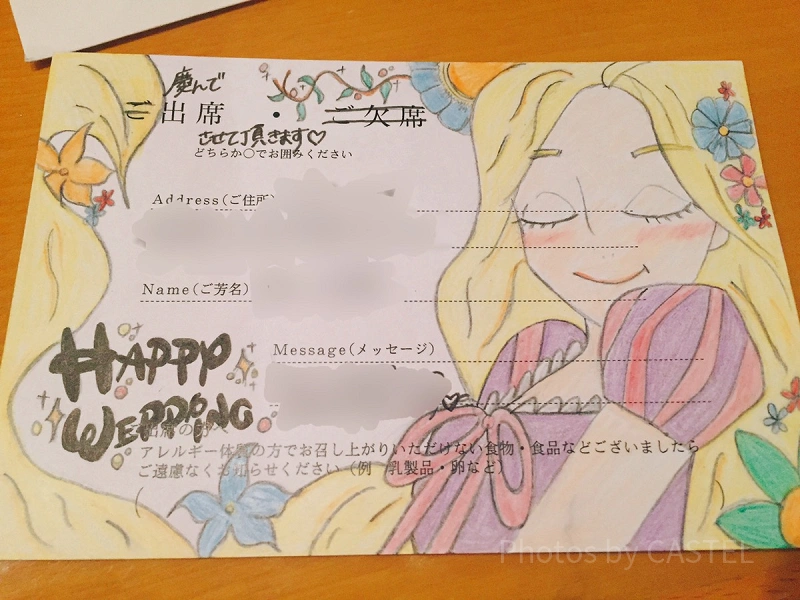 慶んで
ご出席 ・ ご欠席
させて頂きます♡
どちらか○でお囲みください
Address(ご住所)
Name(ご芳名)
Message(メッセージ)
HAPPY
WEDDING
アレルギー体質の方でお召し上がりいただけない食物・食品などございましたら
ご遠慮なくお知らせください(例 乳製品・卵など)
Photos by CASTEL